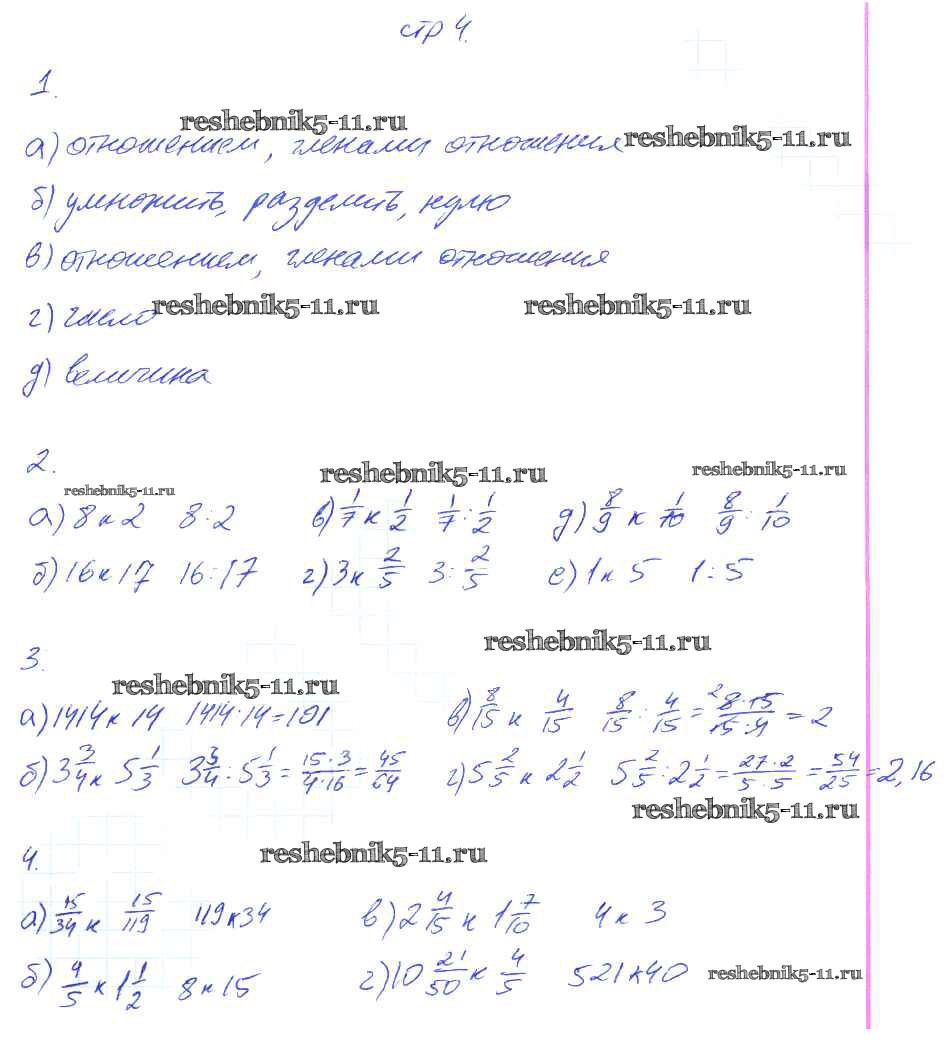 стр 4.
1.
reshebnik5-11.ru
а) отношением, членами отношения reshebnik5-11.ru
б) умножить, разделить, нулю
в) отношением, членами отношения
г) число reshebnik5-11.ru reshebnik5-11.ru
д) величина
2. reshebnik5-11.ru reshebnik5-11.ru
reshebnik5-11.ru
а) 8 к 2 8:2 в) 1/7 к 1/2 1/7 : 1/2 д) 8/9 к 1/10 8/9 : 1/10
б) 16 к 17 16:17 г) 3 к 2/5 3 : 2/5 е) 1 к 5 1:5
reshebnik5-11.ru
3. reshebnik5-11.ru
а) 1414 к 14 1414:14=101 в) 8/15 к 4/15 8/15 : 4/15 = 8·15/15·4 = 2
б) 3 3/4 к 5 1/3 3 3/4 : 5 1/3 = 15·3/4·16 = 45/64 г) 5 2/5 к 2 1/2 5 2/5 : 2 1/2 = 27·2/5·5 = 54/25 = 2,16
reshebnik5-11.ru
4. reshebnik5-11.ru
а) 15/34 к 15/119 119 к 34 в) 2 4/15 к 1 7/10 4 к 3
б) 4/5 к 1 1/2 8 к 15 г) 10 21/50 к 4/5 521 к 40 reshebnik5-11.ru